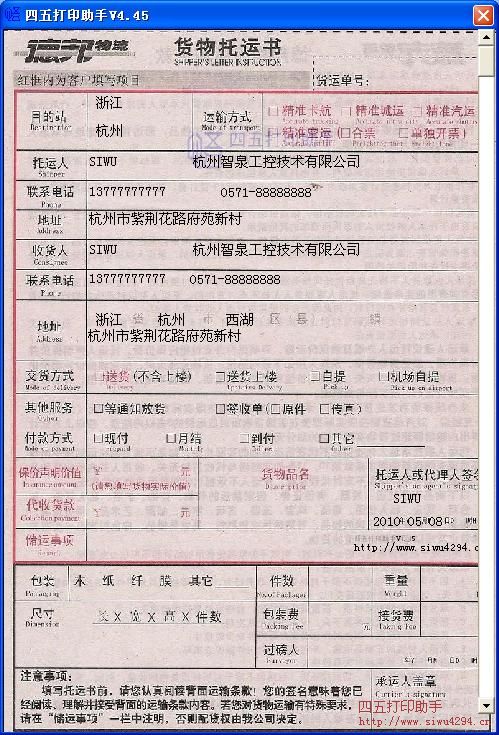 四五打印助手V4.45
德邦物流 货物托运书
SHIPPER'S LETTER INSTRUCTION
红框内为客户填写项目 货运单号:
目的站 浙江 杭州 运输方式 □精准卡航 □精准城运 □精准汽运
Destination Mode of transport
□精准空运(□合票 □单独开票)
四五打印助手
托运人 SIWU 杭州智泉工控技术有限公司
Shipper
联系电话 13777777777 0571-88888888
Phone
地址 杭州市紫荆花路府苑新村
Address
收货人 SIWU 杭州智泉工控技术有限公司
Consignee
联系电话 13777777777 0571-88888888
Phone
地址 浙江 省 杭州 市 西湖 区(县) 镇
Address 杭州市紫荆花路府苑新村
交货方式 □送货(不含上楼) □送货上楼 □自提 □机场自提
Mode of delivery Delivery Upstairs Delivery Pick up Pick up on airport
其他服务 □等通知放货 □签收单(□原件 □传真)
Other
付款方式 □现付 □月结 □到付 □其它
Mode of payment Prepaid Monthly Collect Other
保价声明价值 元 货物品名 托运人或代理人签名
Insurance amount (请您填写货物实际价值) Description Shipper's or agent's signa
代收货款 元 SIWU
Collection payment 2010 05 08
储运事项 V4.45
Remark http://www.siwu4294.c
包装 木 纸 纤 膜 其它 件数 重量
Packaging No.of Packages Weight
尺寸 长 X 宽 X 高 X 件数 包装费 元 接货费
Dimension Packing Fee Taking Fee
过磅人
Surveyor 年Y 月M 日D 时
注意事项: 承运人盖章
Carrier's signature
填写托运书前,请您认真阅读背面运输条款!您的签名意味着您已
经阅读、理解并接受背面的运输条款内容。若您对货物运输有特殊要求,
请在“储运事项”一栏中注明,否则配载权由我公司决定。
四五打印助手
http://www.siwu4294.cn